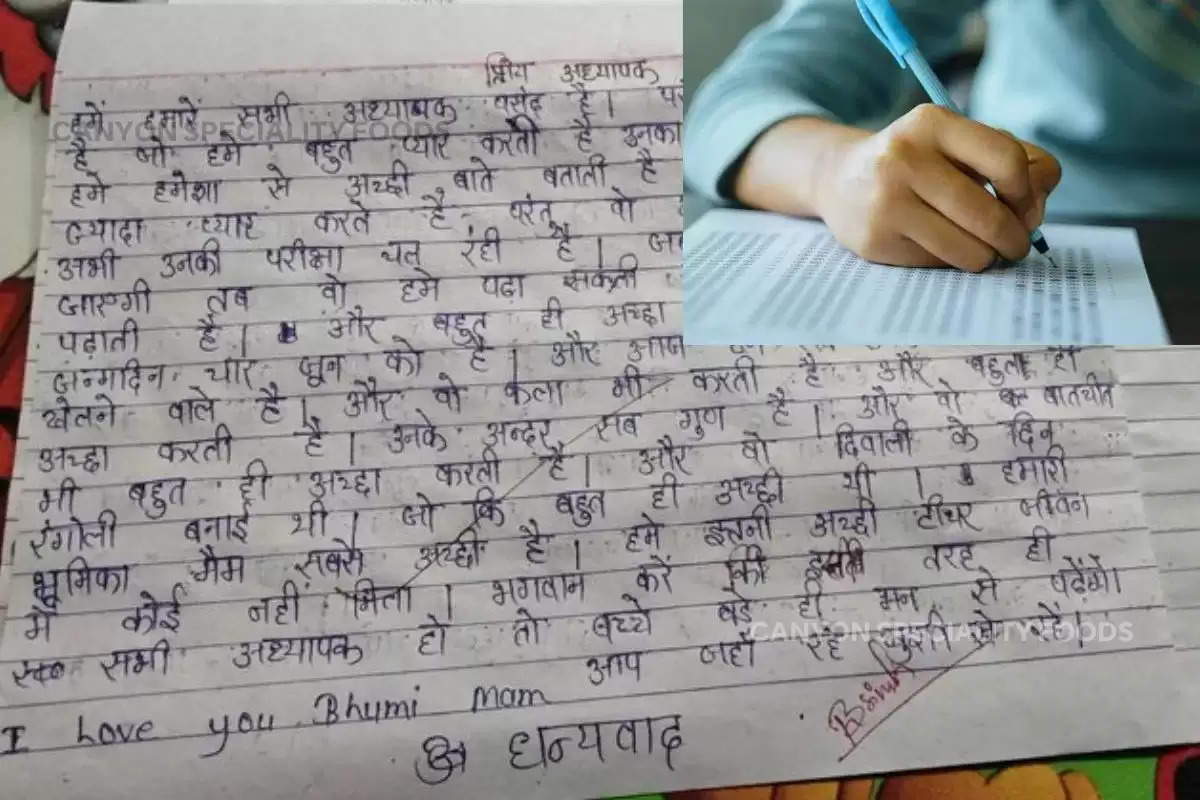 प्रिय अध्यापक
हमें हमारें सभी अध्यापक पसंद है। परं
CANYON SPECIALITY FOODS
है जो हमे बहुत प्यार करती है उनका
हमे हमेशा से अच्छी बाते बताती है
ज्यादा प्यार करते है परंतु वो
अभी उनकी परीक्षा चल रही है।
जाएगी तब वो हमे पढ़ा सकती
पढ़ाती है। और बहुत ही अच्छा
जन्मदिन चार जून को है। और आज
खेलने वाले है। और वो कला भी करती है और बहुत ही
अच्छा करती है। उनके अन्दर सब गुण है। और वो बातचीत
भी बहुत ही अच्छा करती है। और वो दिवाली के दिन
रंगोली बनाई थी। जो कि बहुत ही अच्छी थी। हमारी
भूमिका मैम सबसे अच्छी है। हमे इतनी अच्छी टीचर जीवन
में कोई नहीं मिला। भगवान करें कि इसी तरह ही
सभी अध्यापक हो तो बच्चे बड़े ही मन से पढ़ेंगे।
CANYON SPECIALITY FOODS
आप जहाँ रहे खुशी से रहें।
I Love you Bhumi mam
धन्यवाद